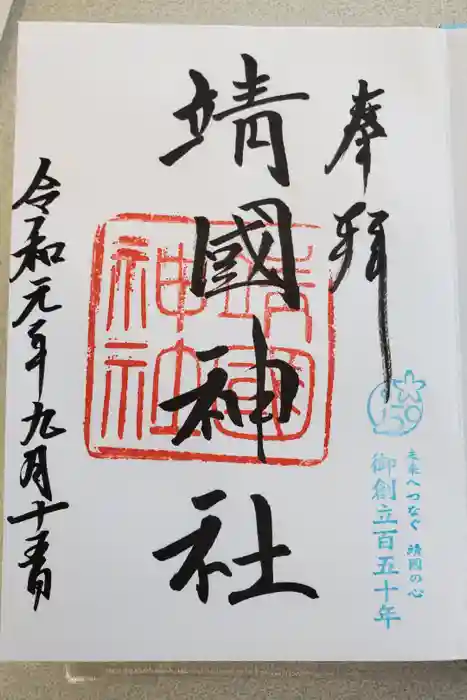 奉拝
150
未来へつなぐ 靖国の心
御創立百五十年
靖國神社
靖國神社
令和元年九月十五日